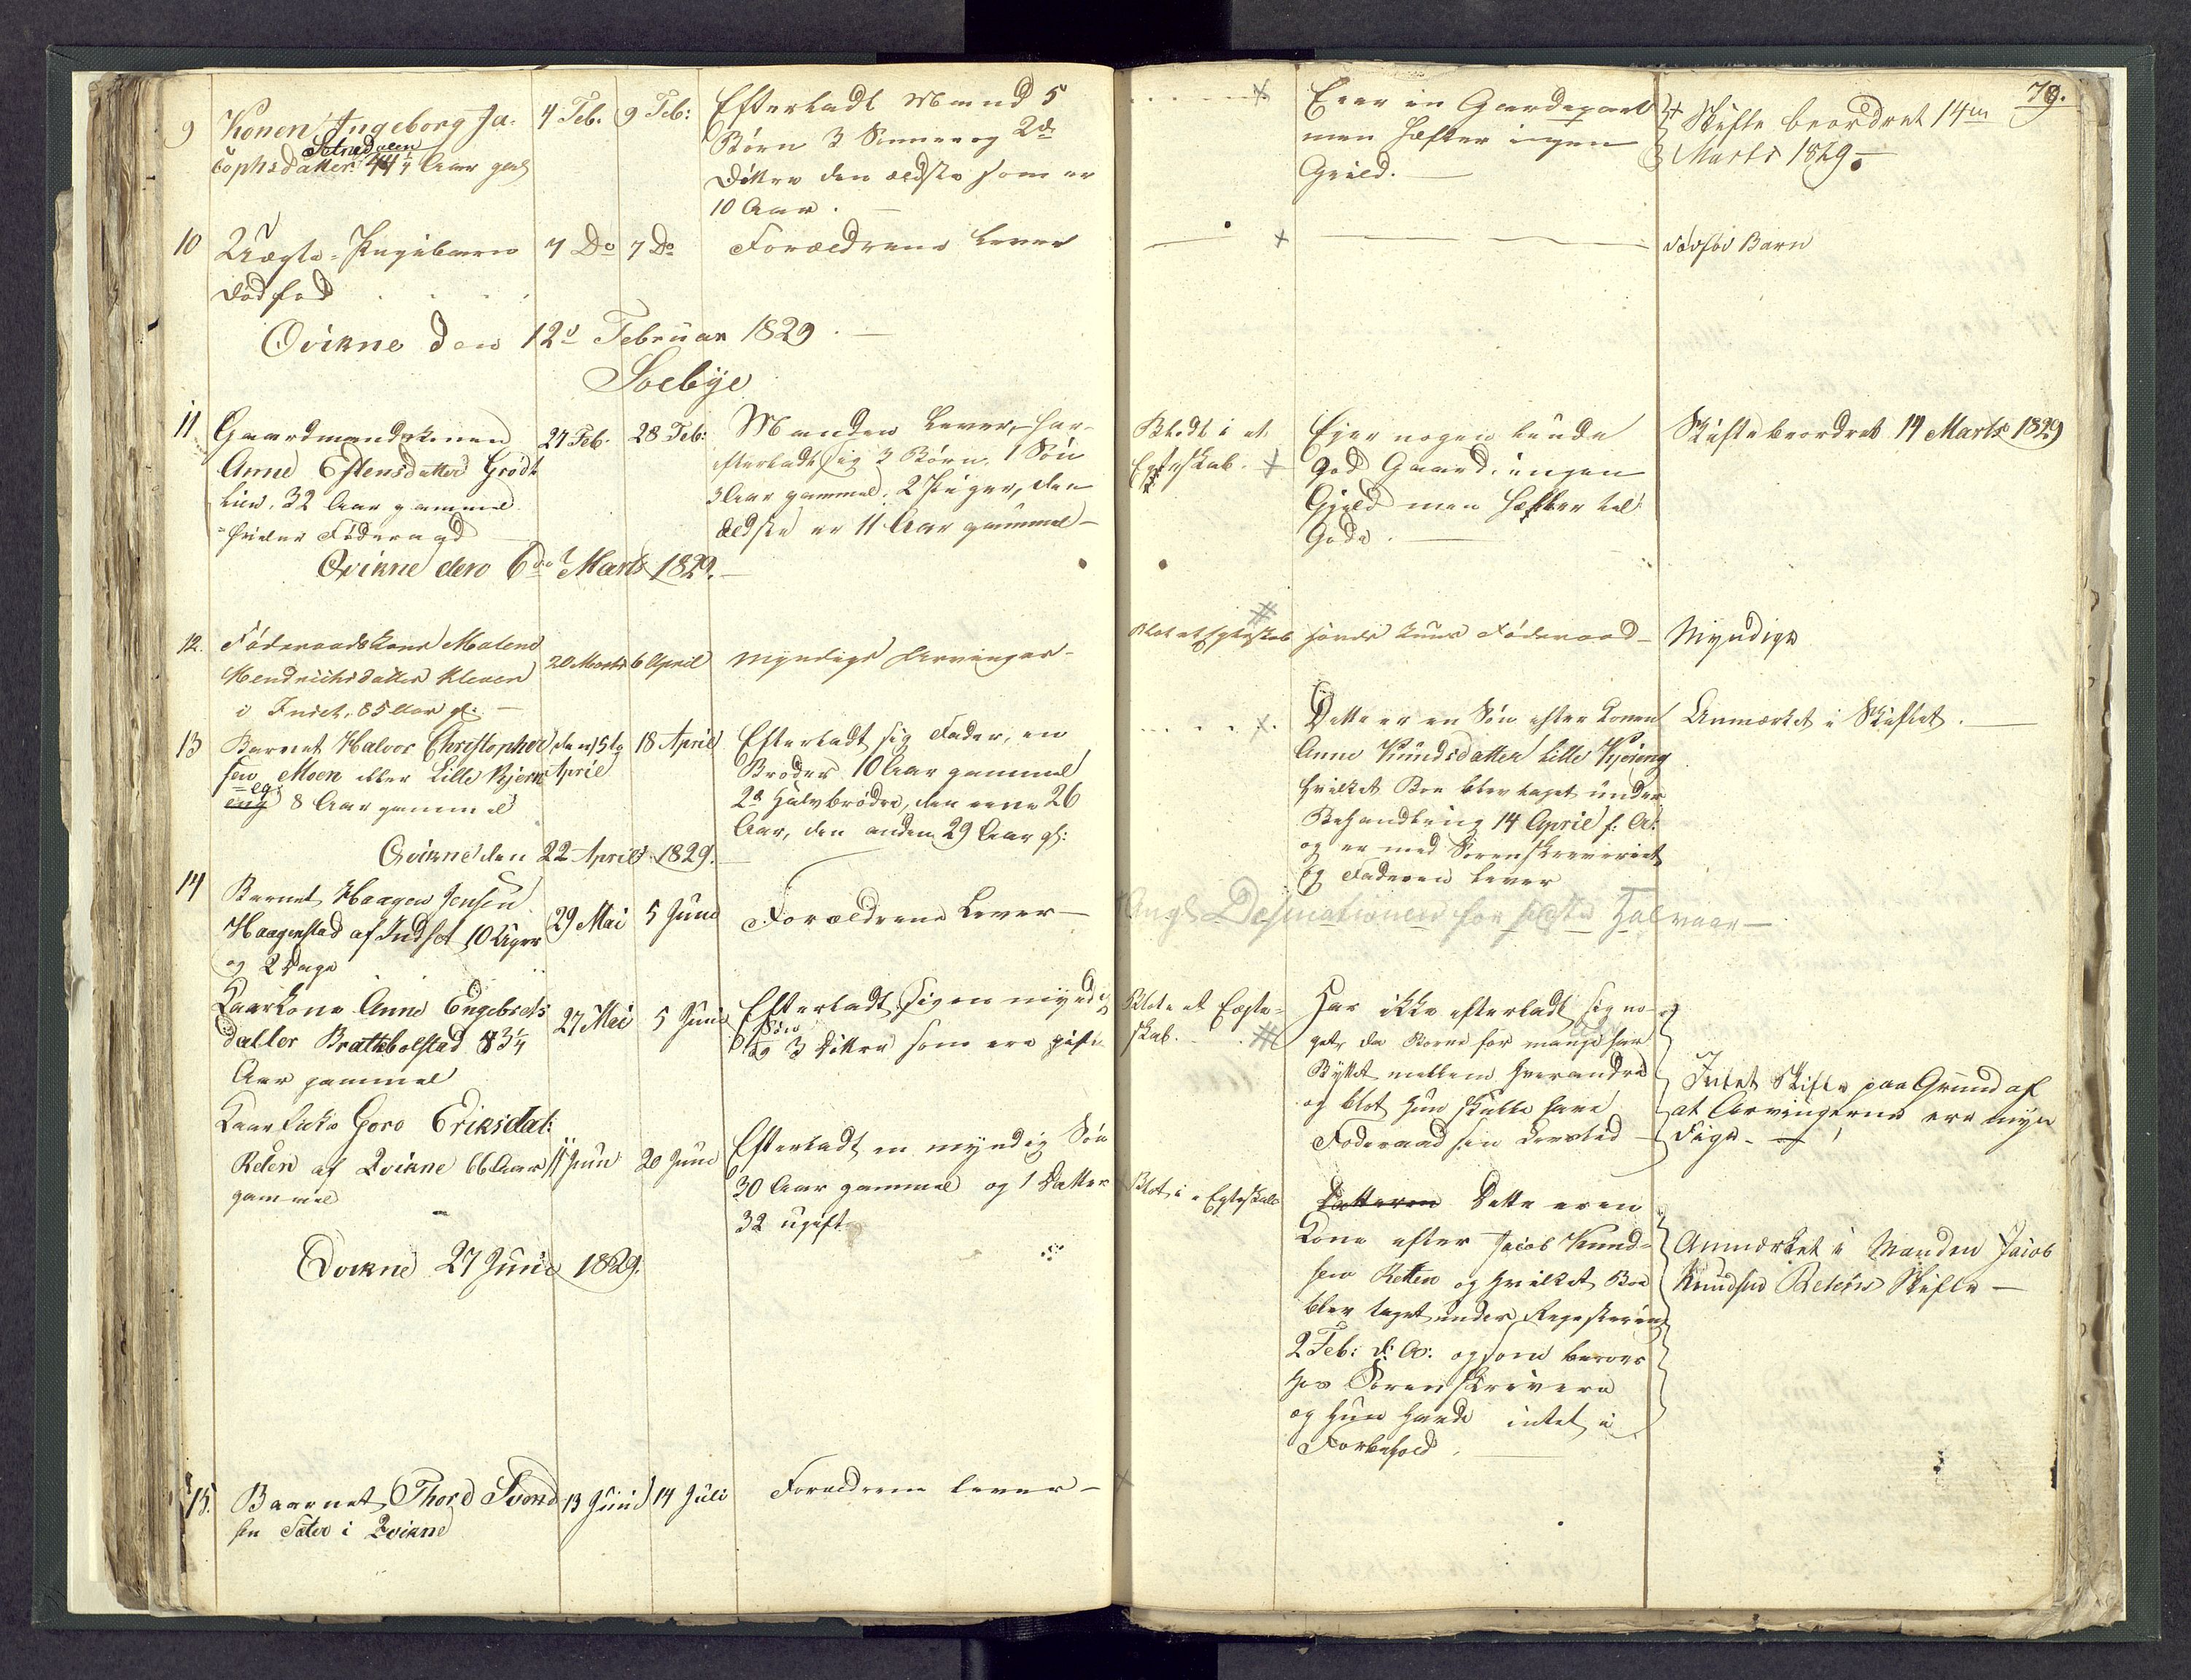 79.
9 Konen Ingeborg Ja-
Sætredalen
cophsdatter 44 1/4 Aar gl
4 Feb. 9 Feb:
Efterladt Mand 5
Børn 3 Sønner og 2de
Døttre den ældste som er
10 Aar.
Eier en Gaardepart
men hefter ingen
Gield.
Skifte beordret 14de
Marts 1829.
10 Uægte Pigebarn
dødfød
7 Do 7 Do
Forældrene lever
dødfød Barn
Qvikne den 12te Februar 1829
Soebye
11 Gaardmandskonen
Anne Estensdatter Grødt
lien, 32 Aar gammel
27 Feb. 28 Feb:
Manden lever, har
efterladt sig 3 Børn, 1 Søn
3 Aar gammel, 2 Piger, den
ældste er 11 Aar gammel
Blodt i et
Egteskab.
Ejer nogen
God Gaard, ingen
Gjeld men
Gods.
Skifte beordret 14 Marts 1829
Qvikne den 6de Marts 1829.
12. Føderaadskone Malene
Hendrichsdatter Kleven
i Indset, 85 Aar gl.
20 Marts 6 April
Myndige Arvinger
Blot et Egteskab
havde kuns Føderaad
Myndige
13 Barnet Halvor Christopher
sen Moen eller Lille Kjøren
eng 8 Aar gammel
den 15te
April
18 April
Efterladt sig Fader, en
Broder 10 Aar gammel
2de Halvbrødre, den eene 26
Aar, den anden 29 Aar gl:
Dette er en Søn efter Konen
Anne Knudsdatter Lille Kjøreng
hvilket Boe blev taget under
Behandling 14 April f: A:
og er med Sorenskriveriet
og Faderen lever
Anmærket i Skiftet.
Qvikne den 22 April 1829.
14 Barnet Haagen Jensen
Haagenstad af Indset 10 Uger
og 2 Dage
29 Mai 5 Juni
Forældrene Lever
Designationen for første Halvaar
Kaarkone Anne Engebrets
datter Brattbolstad 83 1/4
Aar gammel
27 Mai 5 Juni
Efterladt sig en myndig
Søn
og 3 Døttre som ere gifte
Blot et Eegte-
skab.
Har ikke efterladt sig no-
get, da Børne for mange Aar
Byttet mellem hverandre
og blot hun skulle have
Føderaad sin Levetid
Intet Skifte paa Grund af
at Arvingerne ere myn
dige
Goro Eriksdat:
Reten af Qvikne 66 Aar
gammel
11 Juni 20 Juni
Efterladt en myndig Søn
30 Aar gammel og 1 Datter
32 ugift
Blot i Egteskab
Datteren Dette er en
Kone efter Jacob Knud-
sen Retten og hvilket Boe
blev taget under Registering
2 Feb: d: A: og som beroer
hos Sorenskrivere
og hun havde intet i
Forbehold.
Anmærket i Manden Jacob
Knudsen Retens Skifte
Qvikne 27 Juni 1829.
15. Baarnet Thord Svend
sen Sæter i Qvikne
13 Juni 14 Juli
Forældrene lever